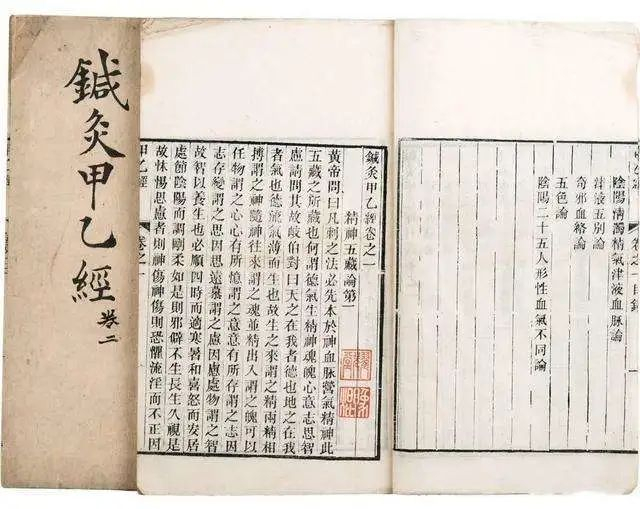 鍼灸甲乙經
卷二
陰陽清濁精氣津液血脈論
津液五別論
奇邪血絡論
五色論
陰陽二十五人形性血氣不同論
鍼灸甲乙經卷之一
精神五藏論第一
黃帝問曰凡刺之法必先本於神血脈營氣精神此
五藏之所藏也何謂德氣生精神魂魄心意志思智
慮請問其故岐伯對曰天之在我者德也地之在我
者氣也德流氣薄而生也故生之來謂之精兩精相
搏謂之神隨神往來謂之魂並精出入謂之魄可以
任物謂之心心有所憶謂之意意有所存謂之志因
志存變謂之思因思遠慕謂之慮因慮處物謂之智
故智以養生也必順四時而適寒暑和喜怒而安居
處節陰陽而調剛柔如是則邪僻不生長生久視是
故怵惕思慮者則神傷神傷則恐懼流淫而不正因
甲乙經
卷之一